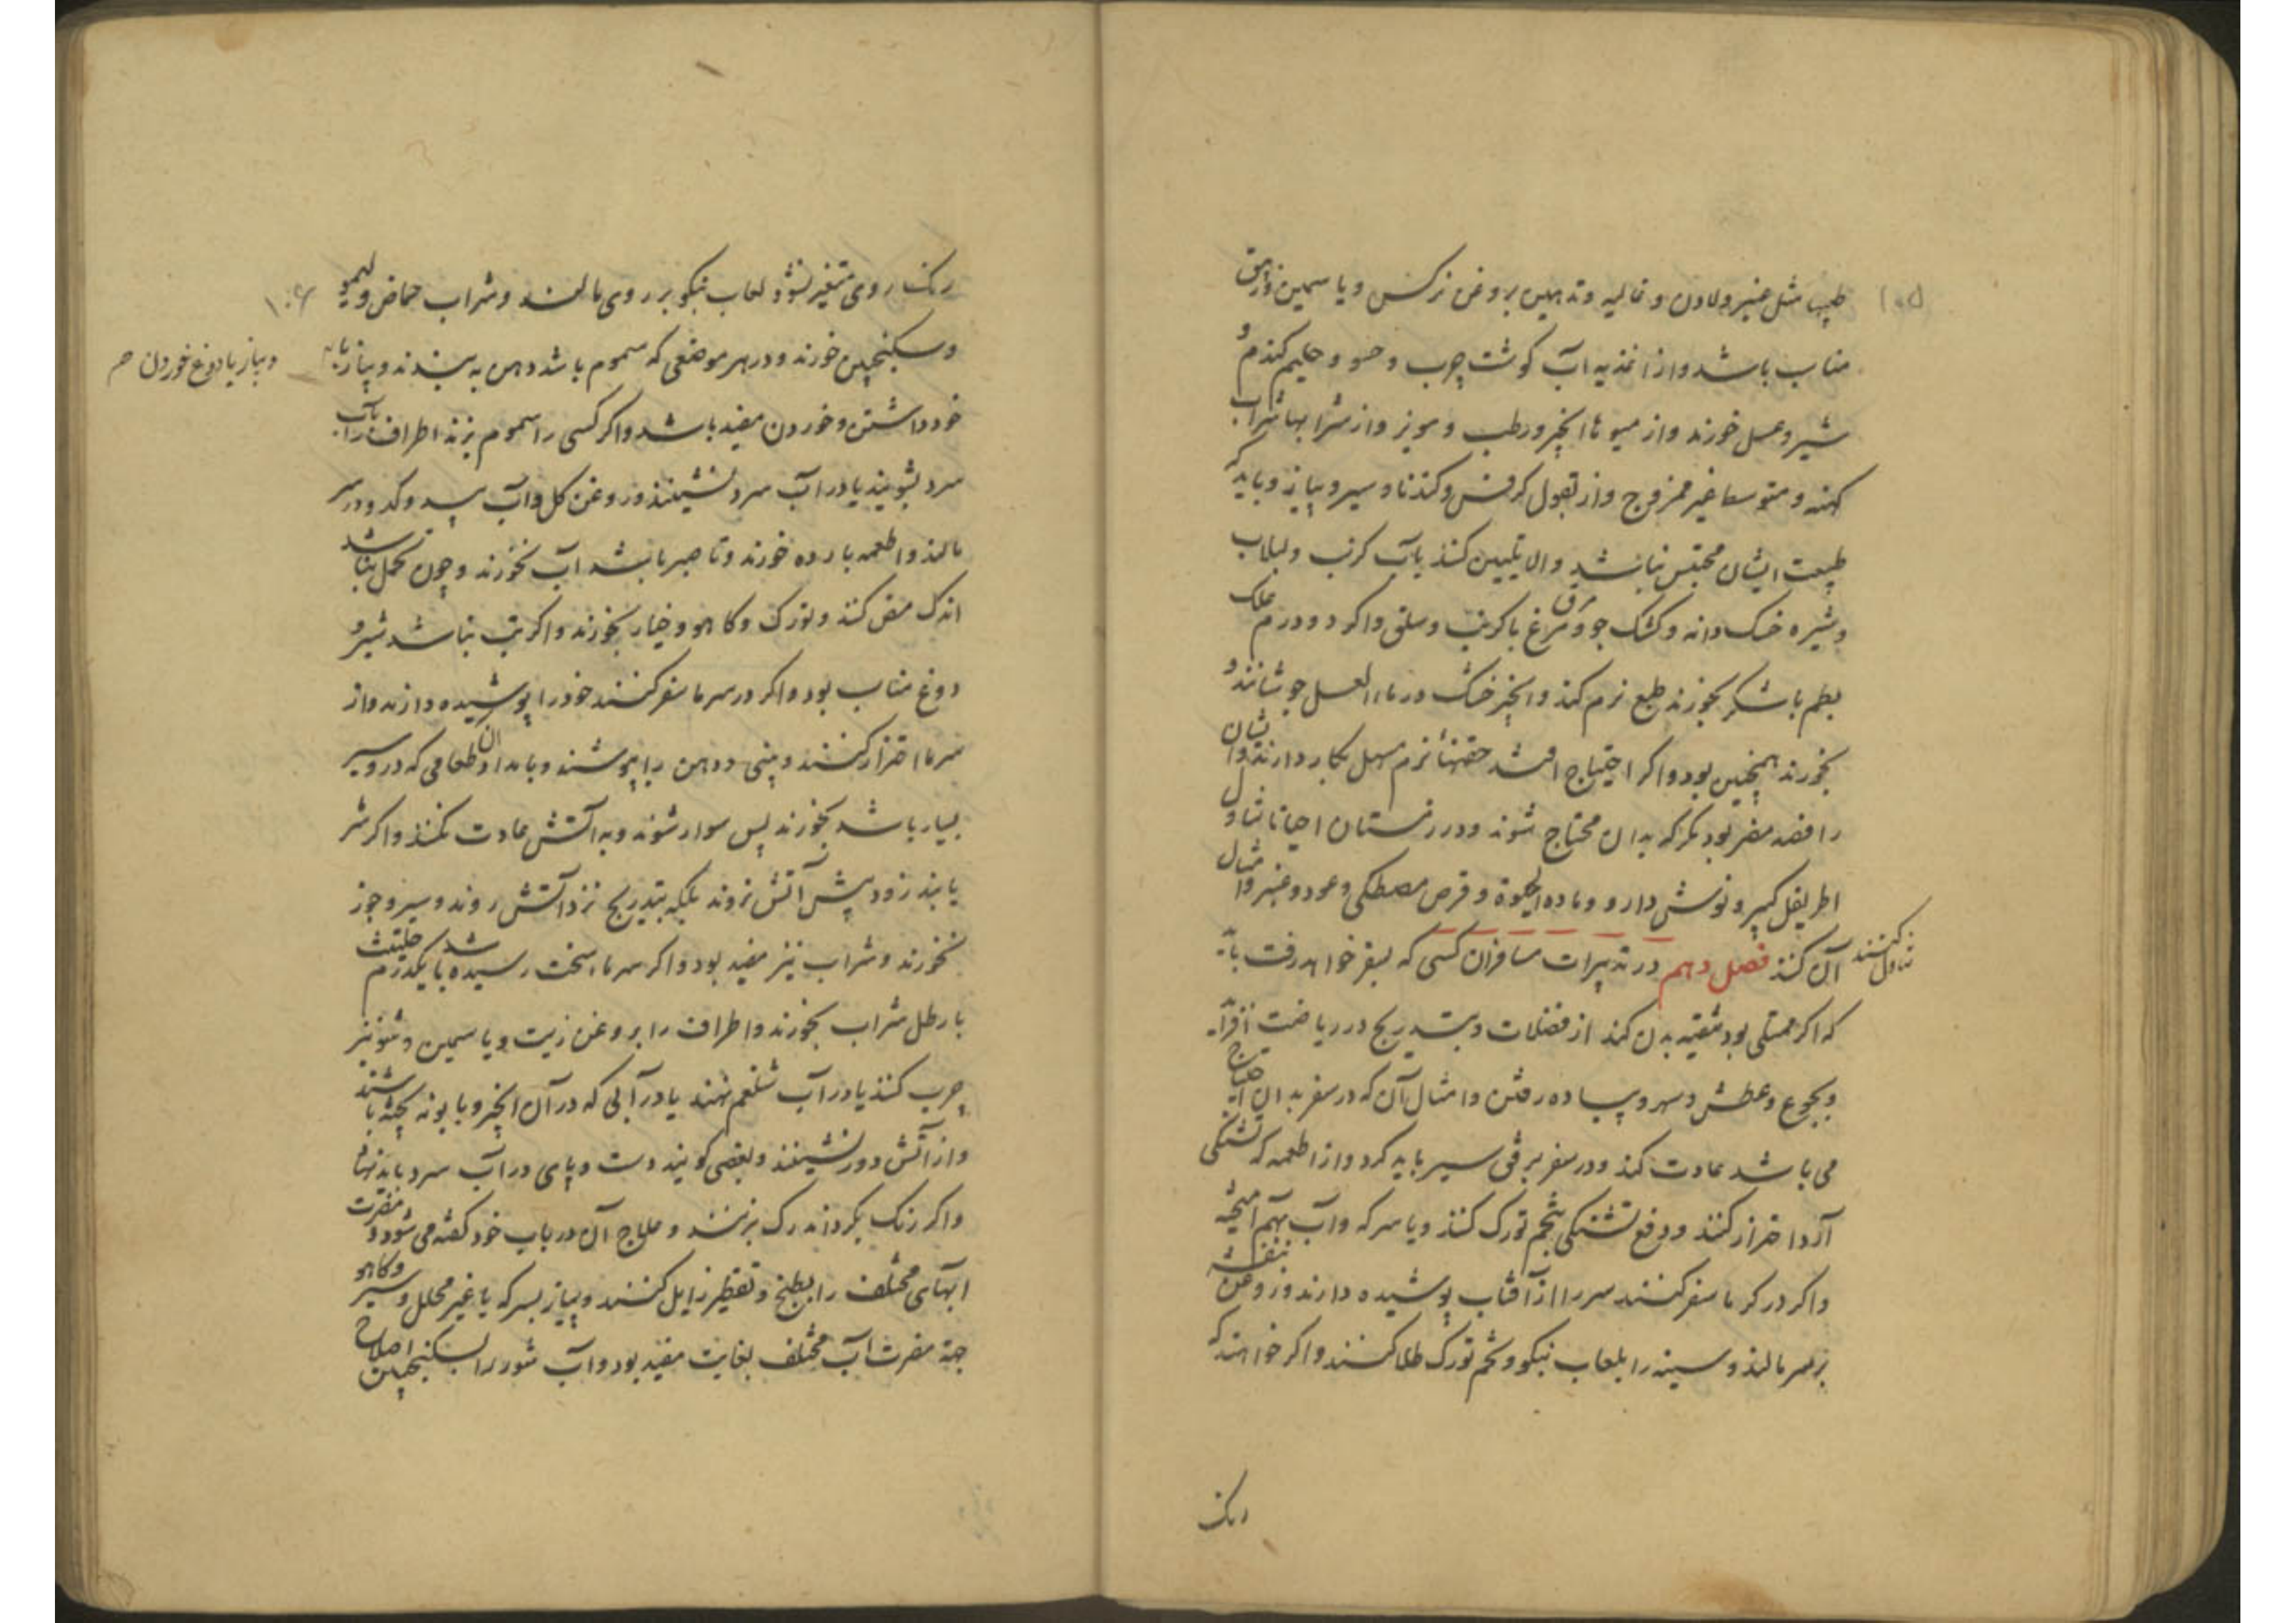 ۱۰۵
طیب مثل عنبر و لادن و غالیه و تدهین بروغن نرکس و یاسمین و زنبق
مناسب باشد و از اغذیه آب کوشت چرب و حسو و حلیم کندم و
شیر و عسل خورند و از میوها انجیر و رطب و مویز و از شرابها شراب
کهنه و متوسط غیر ممزوج و از بقول کرفس و کندنا و سیر و پیاز و باید که
طبیعت ایشان محتبس نباشد و الا تلیین کنند بآب کرنب و لبلاب
و شیره خسک دانه و کشک جو و مرق مرغ با کرنب و سلق و اکر دو درم علک
بطم با شکر بخورند طبع نرم کند و انجیر خشک در ماء العسل جوشانند و
بخورند همچنین بود و اکر احتیاج افتد حقنهاء نرم مسهل بکار دارند و ایشان
را فصد مضر بود مکر که بدان محتاج شوند و در زمستان احیانا تناول
اطریفل کبیر و نوش دارو و ماده الحیوة و قرص مصطکی و عود و عنبر و امثال
آن کنند فصل دهم در تدبیرات مسافران کسی که بسفر خواهد رفت باید
تناول کنند
که اکر ممتلی بود تنقیه بدن کند از فضلات و بتدریج در ریاضت افزاید
و بجوع و عطش و سهر و پیاده رفتن و امثال آن که در سفر بدان احتیاج
می باشد عادت کند و در سفر برفق سیر باید کرد و از اطعمه که تشنکی
آرد احتراز کنند و دفع تشنکی بتخم تورک کنند و یا سرکه و آب بهم آمیخته
و اکر در کرما سفر کنند سر را از آفتاب پوشیده دارند و روغن بنفشه
بر سر مالند و سینه را بلعاب نیکو و تخم تورک طلا کنند و اکر خواهند که
رنک
۱۰۶
رنک روی متغیر نشود لعاب نیکو بر روی مالند و شراب حماض و لیمو
و سکنجبین خورند و در هر موضعی که سموم باشد دهن به بندند و پیاز با
و پیاز با دوغ خوردن صح
خود داشتن و خوردن مفید باشد و اکر کسی را سموم بزند اطراف را بآب
سرد بشویند یا در آب سرد نشینند و روغن کل و آب بید و کدو در سر
مالند و اطعمه بارده خورند و تا صبر باشد آب نخورند و چون تحمل نباشد
اندک مص کنند و تورک و کاهو و خیار بخورند و اکر تب نباشد شیر و
دوغ مناسب بود و اکر در سرما سفر کنند خود را پوشیده دارند و از
سرما احتراز کنند و بینی و دهن را بپوشند و بامدادان طعامی که در و سیر
بسیار باشد بخورند پس سوار شوند و به آتش عادت نکنند و اکر سر
یابند زود پیش آتش نروند بلکه بتدریج نزد آتش روند و سیر و جوز
بخورند و شراب نیز مفید بود و اکر سرما سخت رسیده باشد یکدرم حلتیت
با رطل شراب بخورند و اطراف را بروغن زیت و یاسمین و شونیز
چرب کنند یا در آب شلغم نهند یا در آبی که در آن انجیر و بابونه پخته باشند
و از آتش دور نشینند و بعضی کویند دست و پای در آب سرد باید نهاد
و اکر رنک بکرداند رک بزنند و علاج آن در باب خود کفته می شود و مضرت
ابهای مختلف را بطبخ و تقطیر زایل کنند و پیاز بسرکه یا غیر محلل و سیر و کاهو
جهة مضرت آب مختلف بغایت مفید بود و آب شور را بسکنجبین اصلاح